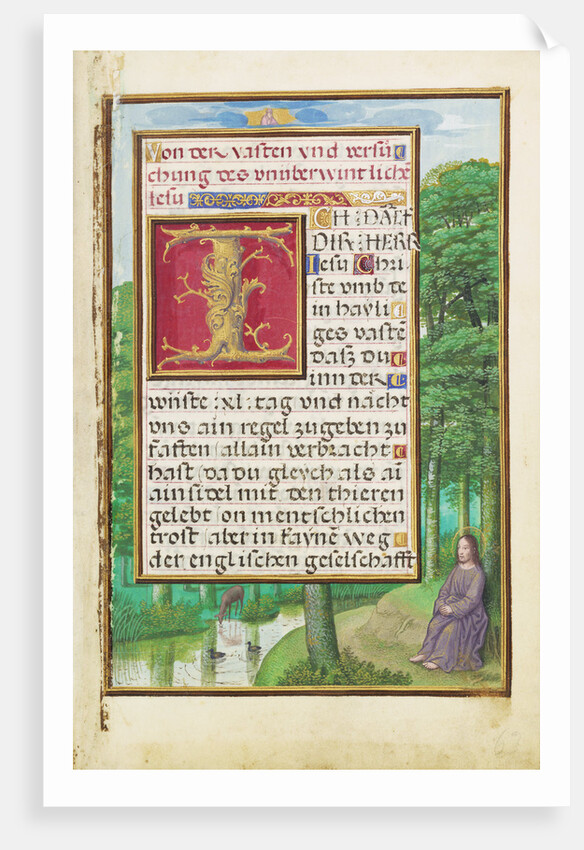 Von der vasten vnd versu
chung des vnüberwintlichē
Jesu
CH DANCK
DIR HERR
Iesu Chri
ste vmb de
in hayli
ges vastē
daß du
inn der
wüste :xl: tag vnd nacht
vns ain regel zugeben zu
fasten (allain verbracht
hast (da du gleych als ai
ainsidel mit den thieren
gelebt on mentschlichen
trost (aber in kaynē weg
der englischen geselschafft